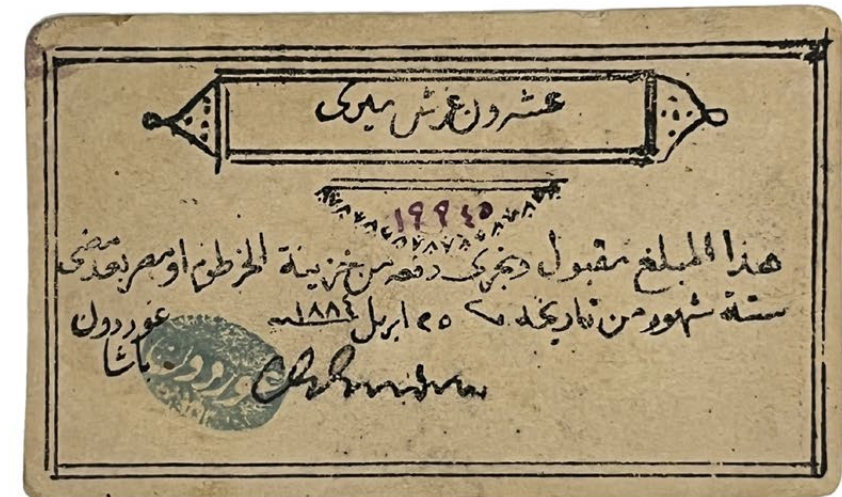 عشرون غرش ميرى
١٩٩٤٥
هذا المبلغ مقبول ويجرى دفعه من خزينة الخرطوم او مصر بعد مضى
ستة شهور من تاريخه ٢٥ ابريل ١٨٨٤
غوردون
باشا